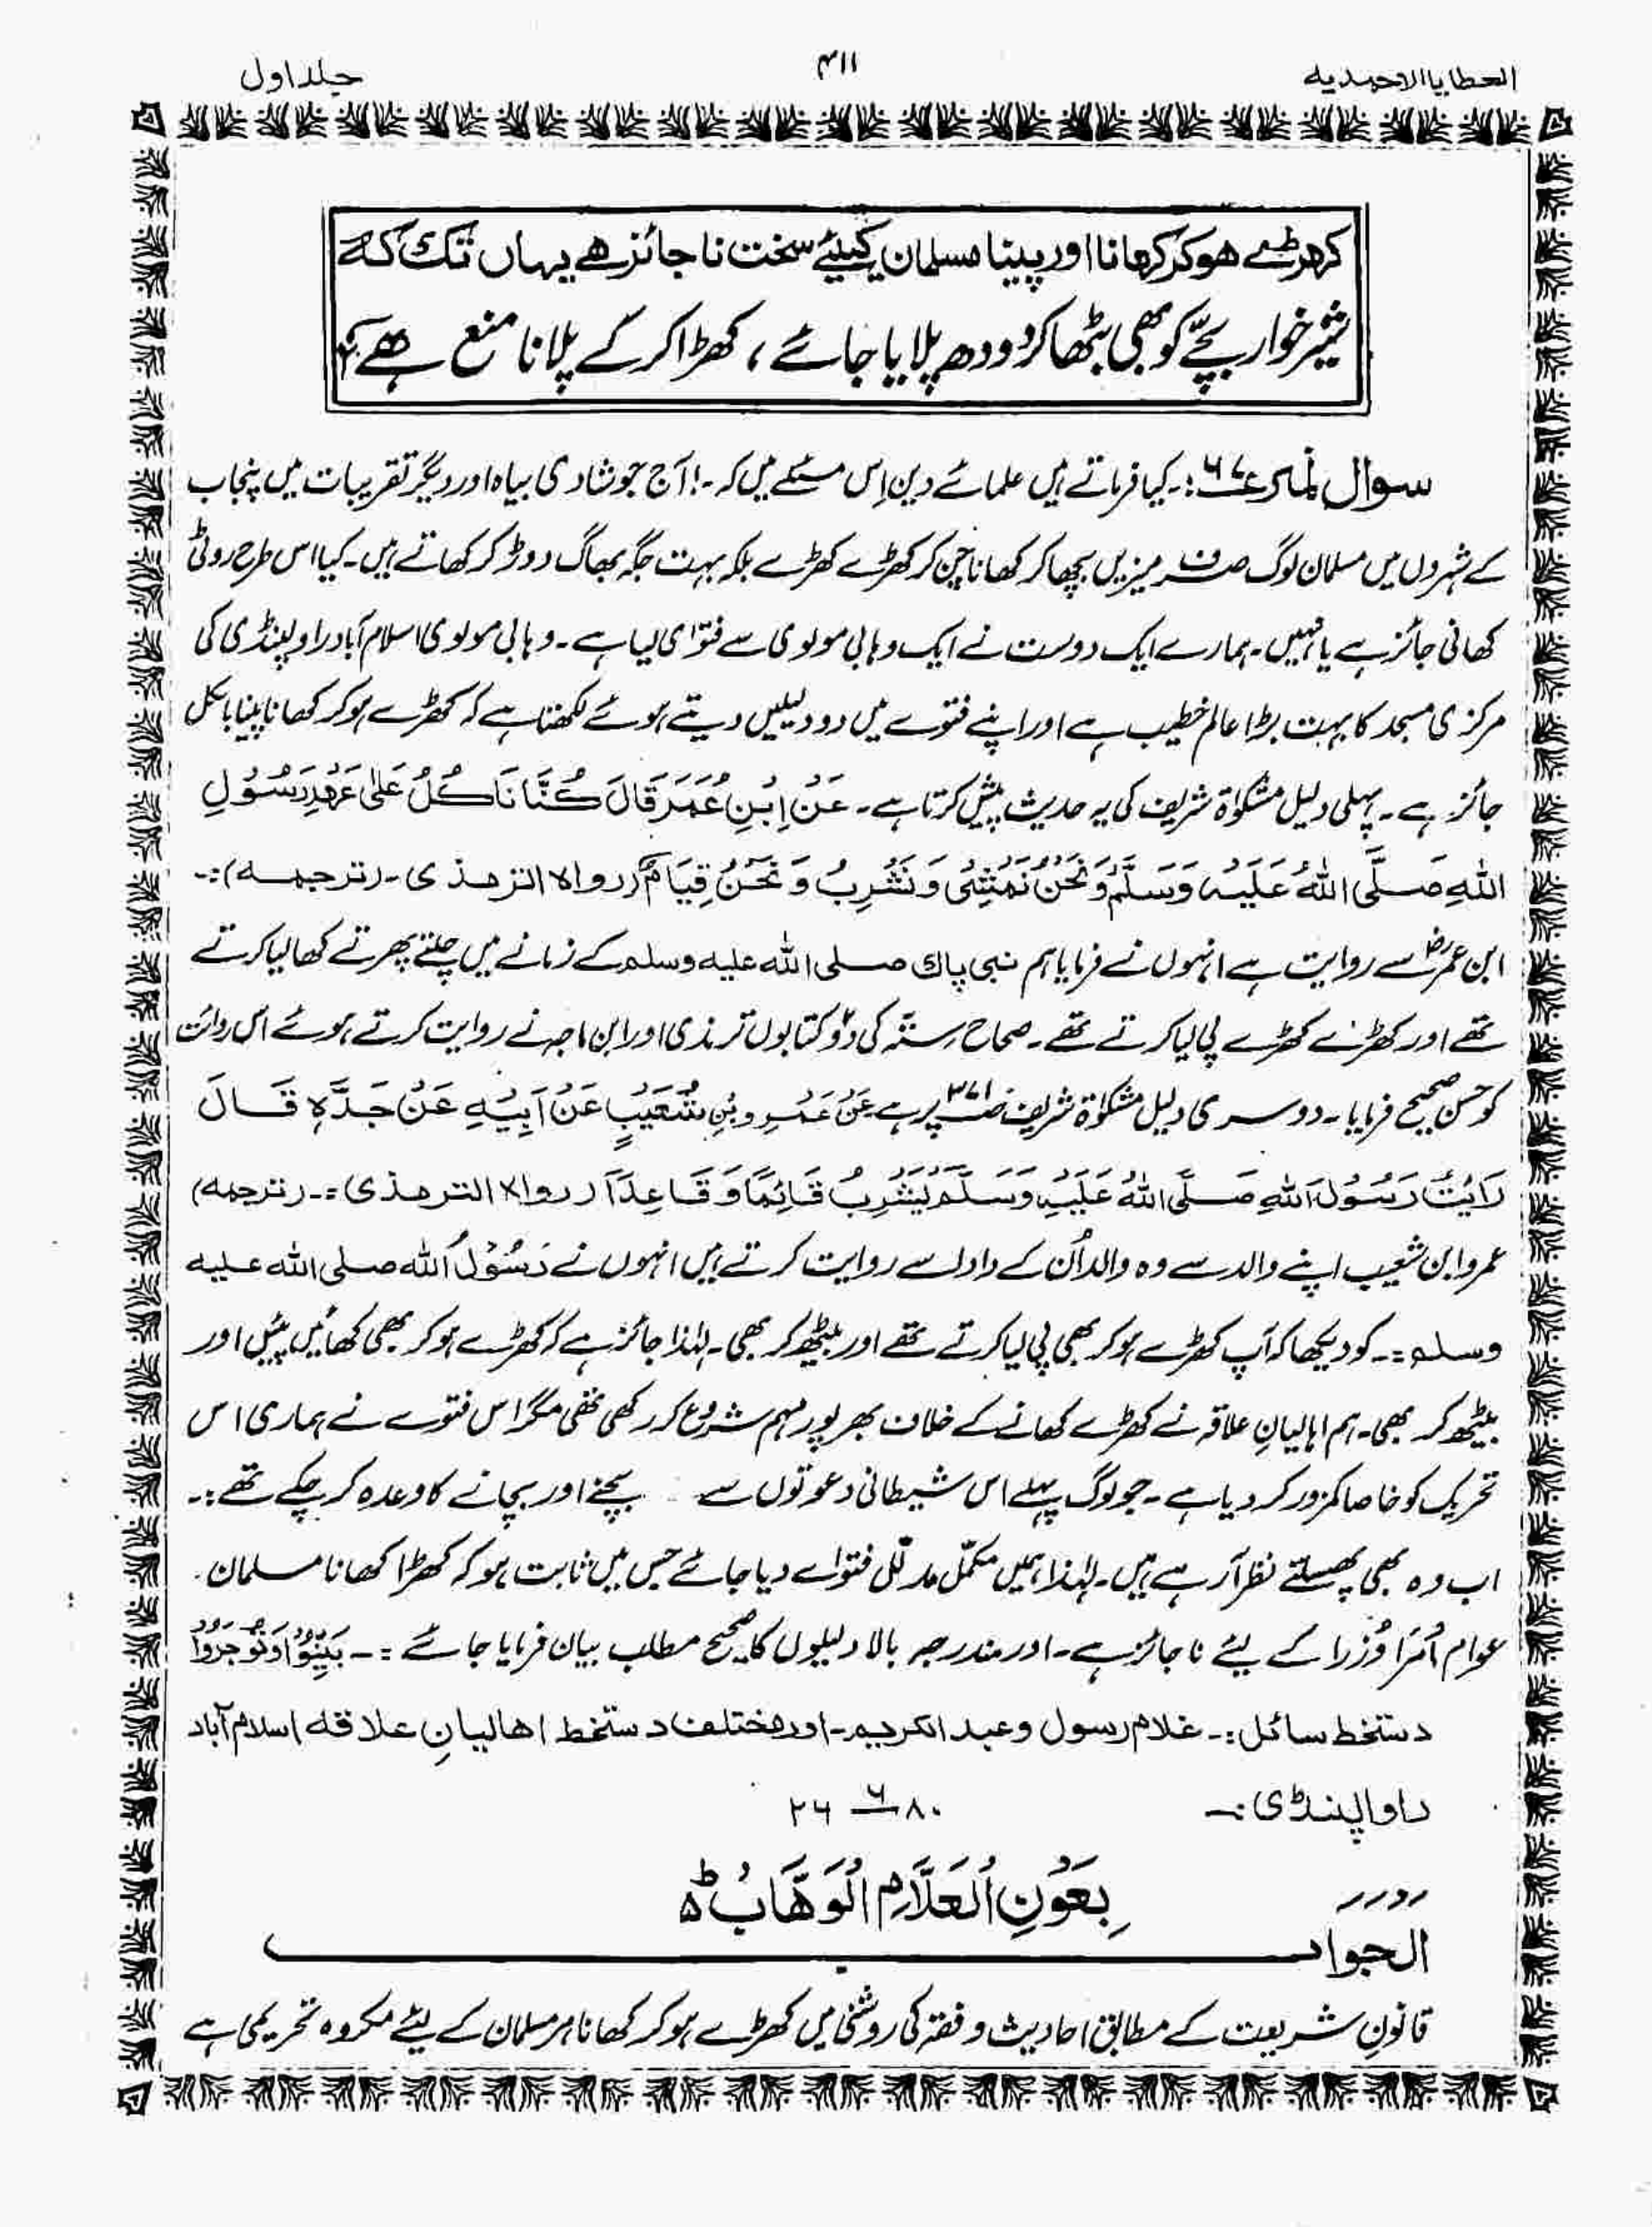 العطایا الاحمدیہ
۳۱۱
جلد اول
کھڑے ھوکر کھانا اور پینا مسلمان کیلئے سخت ناجائز ھے یہاں تک کہ
شیر خوار بچّے کو بھی بٹھا کر دودھ پلایا جائے ، کھڑا کر کے پلانا منع ھے
سوال نمبر ۶۷ :۔ کیا فرماتے ہیں علمائے دین اِس مسئلے میں کہ ۔! آج جو شادی بیاہ اور دیگر تقریبات میں پنجاب
کے شہروں میں مسلمان لوگ صرف میزیں بچھا کر کھانا چُن کر کھڑے کھڑے بلکہ بہت جگہ بھاگ دوڑ کر کھاتے ہیں ۔ کیا اس طرح روٹی
کھانی جائز ہے یا نہیں ۔ ہمارے ایک دوست نے ایک وہابی مولوی سے فتوٰی لیا ہے ۔ وہابی مولوی اسلام آباد راولپنڈی کی
مرکزی مسجد کا بہت بڑا عالم خطیب ہے اور اپنے فتوے میں دو دلیلیں دیتے ہوئے لکھتا ہے کہ کھڑے ہو کر کھانا پینا بالکل
جائز ہے ۔ پہلی دلیل مشکوٰۃ شریف کی یہ حدیث پیش کرتا ہے ۔ عَنْ اِبْنِ عُمَرَ قَالَ كُنَّا نَاكُلُ عَلٰى عَهْدِ رَسُوْلِ
اللهِ صَلَّى اللهُ عَلَيْهِ وَسَلَّمَ وَ نَحْنُ نَمْشِىْ وَ نَشْرِبُ وَ نَحْنُ قِيَامٌ (رواہ الترمذی ۔ (ترجمہ) :۔
ابن عمرؓ سے روایت ہے انہوں نے فرمایا ہم نبی پاک صلی اللہ علیہ وسلم کے زمانے میں چلتے پھرتے کھا لیا کرتے
تھے اور کھڑے کھڑے پی لیا کرتے تھے ۔ صحاح ستّہ کی دوٗ کتابوں ترمذی اور ابن ماجہ نے روایت کرتے ہوئے اس روائت
کو حسن صحیح فرمایا ۔ دوسری دلیل مشکوٰۃ شریف صـ ۳۷۱ پر ہے عَنْ عَمْرِو بْنِ شُعَيْبٍ عَنْ اَبِيْهِ عَنْ جَدِّهٖ قَالَ
رَاَيْتُ رَسُوْلَ اللهِ صَلَّى اللهُ عَلَيْهِ وَسَلَّمَ يَشْرِبُ قَائِمًا وَ قَاعِدًا (رواہ الترمذی) :۔ (ترجمہ)
عمرو ابن شعیب اپنے والد سے وہ والد اُن کے دادا سے روایت کرتے ہیں انہوں نے رَسُوْلُ اللہ صلی اللہ علیہ
وسلم :۔ کو دیکھا کہ آپ کھڑے ہو کر بھی پی لیا کرتے تھے اور بیٹھ کر بھی ۔ لہٰذا جائز ہے کہ کھڑے ہو کر بھی کھائیں پیئں اور
بیٹھ کر بھی ۔ ہم اہالیانِ علاقہ نے کھڑے کھانے کے خلاف بھر پور مہم شروع کر رکھی تھی مگر اس فتوے نے ہماری اس
تحریک کو خاصا کمزور کر دیا ہے ۔ جو لوگ پہلے اس شیطانی دعوتوں سے بچنے اور بچانے کا وعدہ کر چکے تھے :۔
اب وہ بھی پھسلتے نظر آ رہے ہیں ۔ لہٰذا ہمیں مکمّل مدلّل فتوٰے دیا جائے جس میں ثابت ہو کہ کھڑا کھانا مسلمان
عوام اُمَرَا وُزرا کے لیئے ناجائز ہے ۔ اور مندرجہ بالا دلیلوں کا صحیح مطلب بیان فرمایا جائے :۔ بَيِّنُوْا وَتُوْجَرُوْا
دستخط سائل :۔ غلام رسول و عبد الکریم ۔ اور مختلف دستخط اھالیانِ علاقہ اسلام آباد
راولپنڈی :۔ ۲۶ ۶ ۸۰
بِعَوْنِ الْعَلَّامِ الْوَهَّابُ ط
الجواب
قانونِ شریعت کے مطابق احادیث و فقہ کی روشنی میں کھڑے ہو کر کھانا ہر مسلمان کے لیئے مکروہ تحریمی ہے